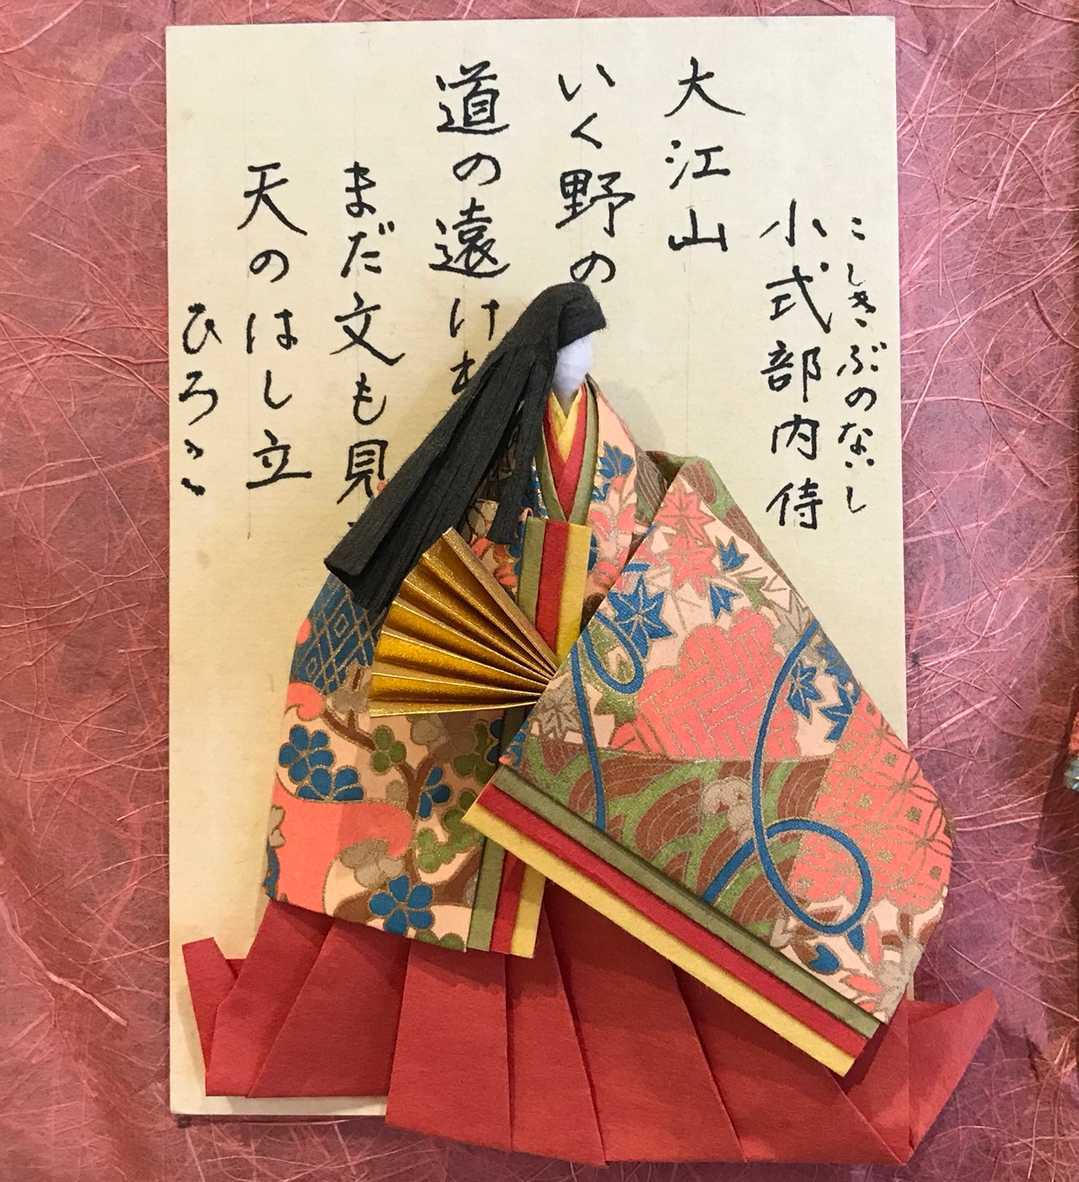 こしきぶのないし
小式部内侍
大江山
いく野の
道の遠け
まだ文も見
天のはし立
ひろこ